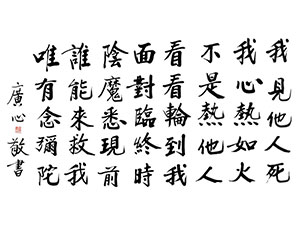 我見他人死
我心熱如火
不是熱他人
看看輪到我
面對臨終時
陰魔悉現前
誰能來救我
唯有念彌陀
廣心敬書